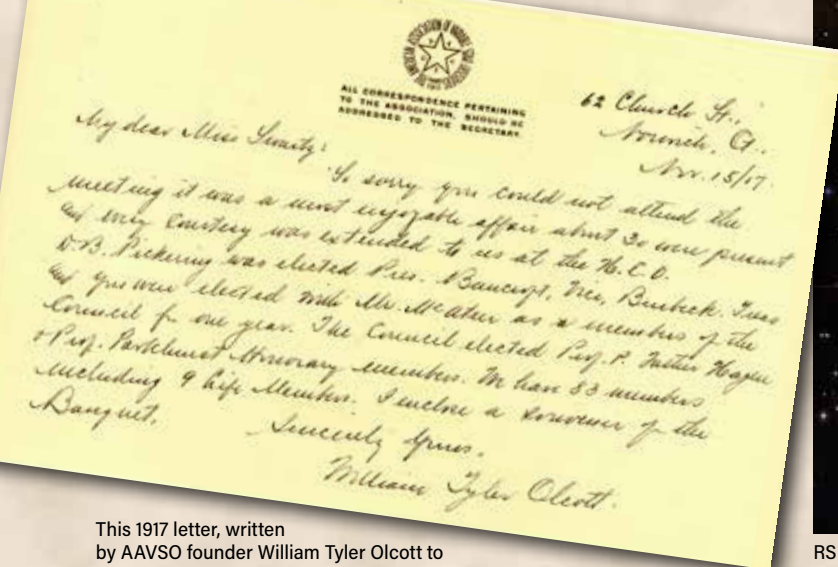 THE AMERICAN ASSOCIATION OF VARIABLE STAR OBSERVERS
ALL CORRESPONDENCE PERTAINING
TO THE ASSOCIATION, SHOULD BE
ADDRESSED TO THE SECRETARY.
62 Church St.,
Norwich, Ct.
Nov. 15/17.
My dear Miss Swartz:
So sorry you could not attend the
meeting it was a most enjoyable affair about 30 were present
and every courtesy was extended to us at the H.C.O.
D.B. Pickering was elected Pres. Bancroft, Vice, Burbeck. Treas
and you were elected with Mr. McAteer as a member of the
Council for one year. The Council elected Prof. P. Father Hagen
& Prof. Parkhurst Honorary members. We have 83 members
including 9 life Members. I enclose a souvenir of the
Banquet.
Sincerely Yours.
William Tyler Olcott.
This 1917 letter, written
by AAVSO founder William Tyler Olcott to
RS